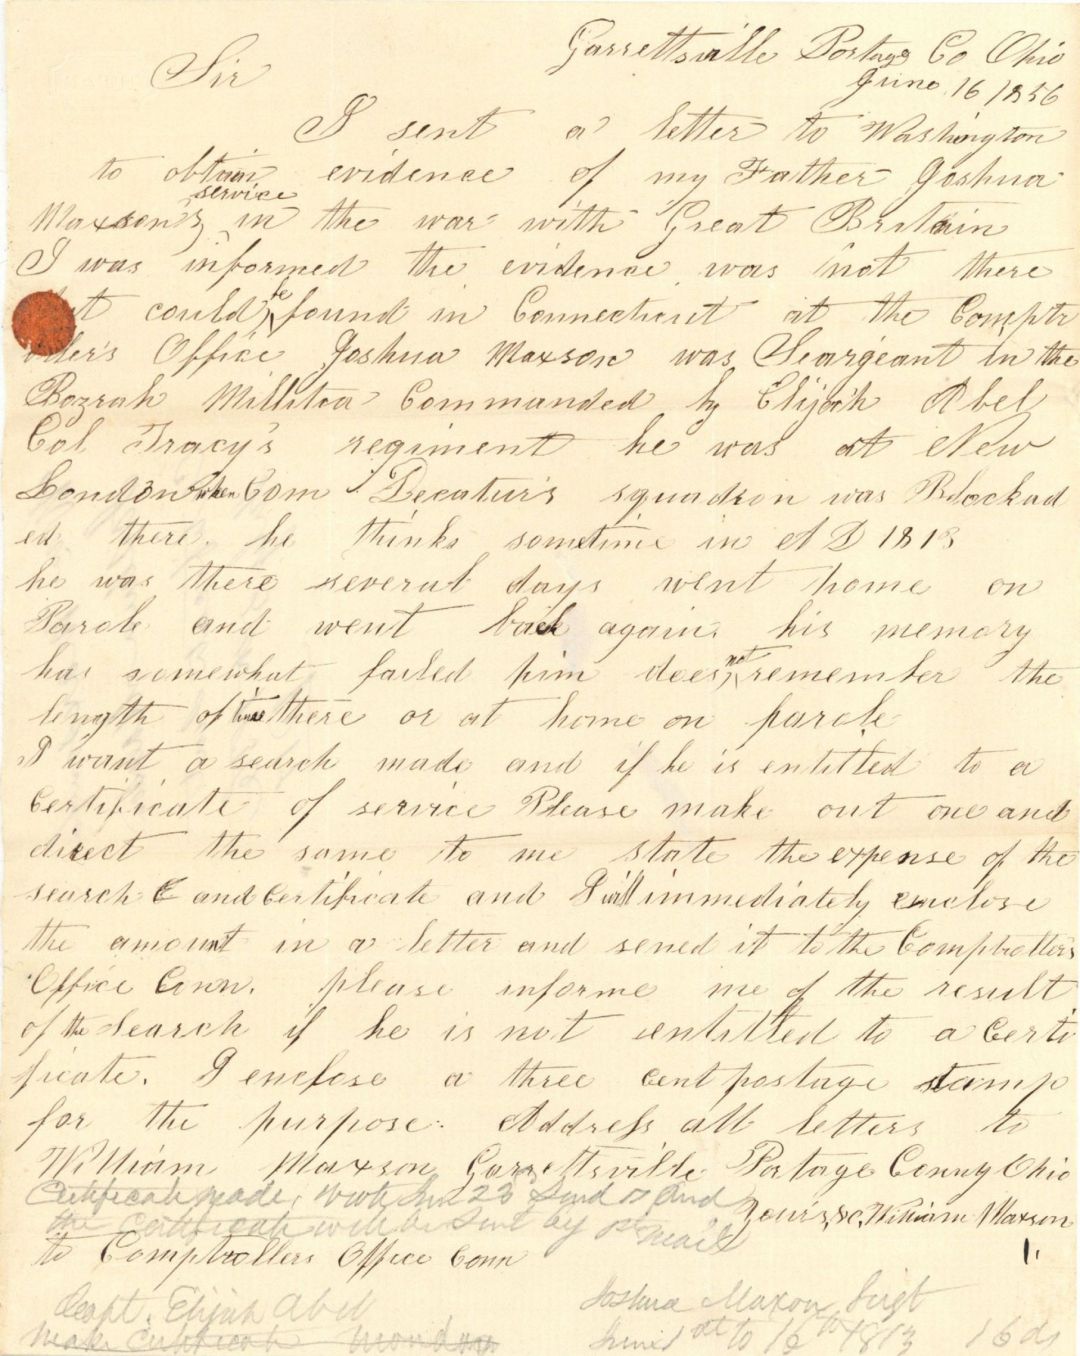 Garrettsville Portage Co Ohio
June 16 1856
Sir
I sent a letter to Washington
to obtain evidence of my Father Joshua
Maxson's service in the war with Great Britain
I was informed the evidence was not there
but could be found in Connecticut at the Comptr
oller's Office Joshua Maxson was Seargeant in the
Bozrah Millitia Commanded by Elijah Abel
Col Tracy's regiment he was at New
London when Com Decatur's squadron was Blockad
ed there. he thinks sometime in A D 1813
he was there several days went home on
Parole and went back again. his memory
has somewhat failed him does not remember the
length of time there or at home on parole
I want a search made and if he is entitled to a
Certificate of service Please make out one and
direct the same to me state the expense of the
search & and Certificate and I will immediately enclose
the amount in a letter and sened it to the Comptrollers
Office Conn. please informe me of the result
of the Search if he is not entitled to a Certi
ficate. I enclose a three cent postage stamp
for the purpose. Address all letters to
William Maxson Garrettsville Portage Conny Ohio
Certificate made, wrote Jun 23 Send &
the Certificate will be Sent by 1st mail
Yours &c, William Maxson
to Comptrollers Office Conn
1.
Capt. Elijah Abel
Make Certificate
Joshua Maxon, Sergt
June 1st to 16th 1813 16 ds